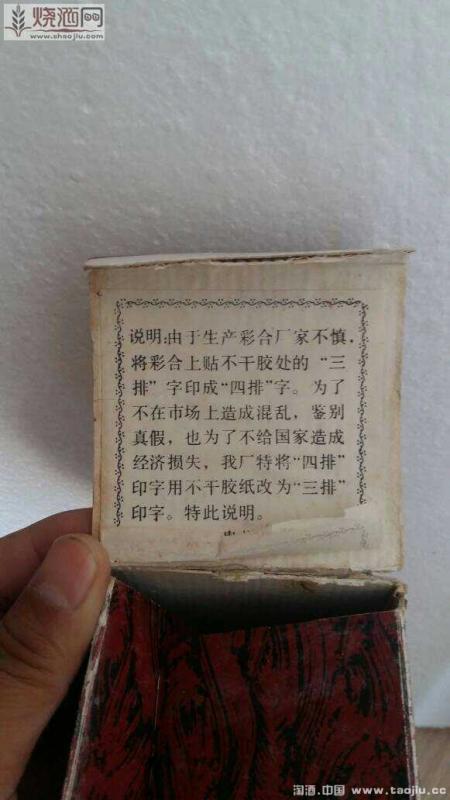 烧酒网
www.shaojiu.com
说明:由于生产彩合厂家不慎,
将彩合上贴不干胶处的“三
排”字印成“四排”字。为了
不在市场上造成混乱,鉴别
真假,也为了不给国家造成
经济损失,我厂特将“四排”
印字用不干胶纸改为“三排”
印字。特此说明。
淘酒.中国 www.taojiu.cc